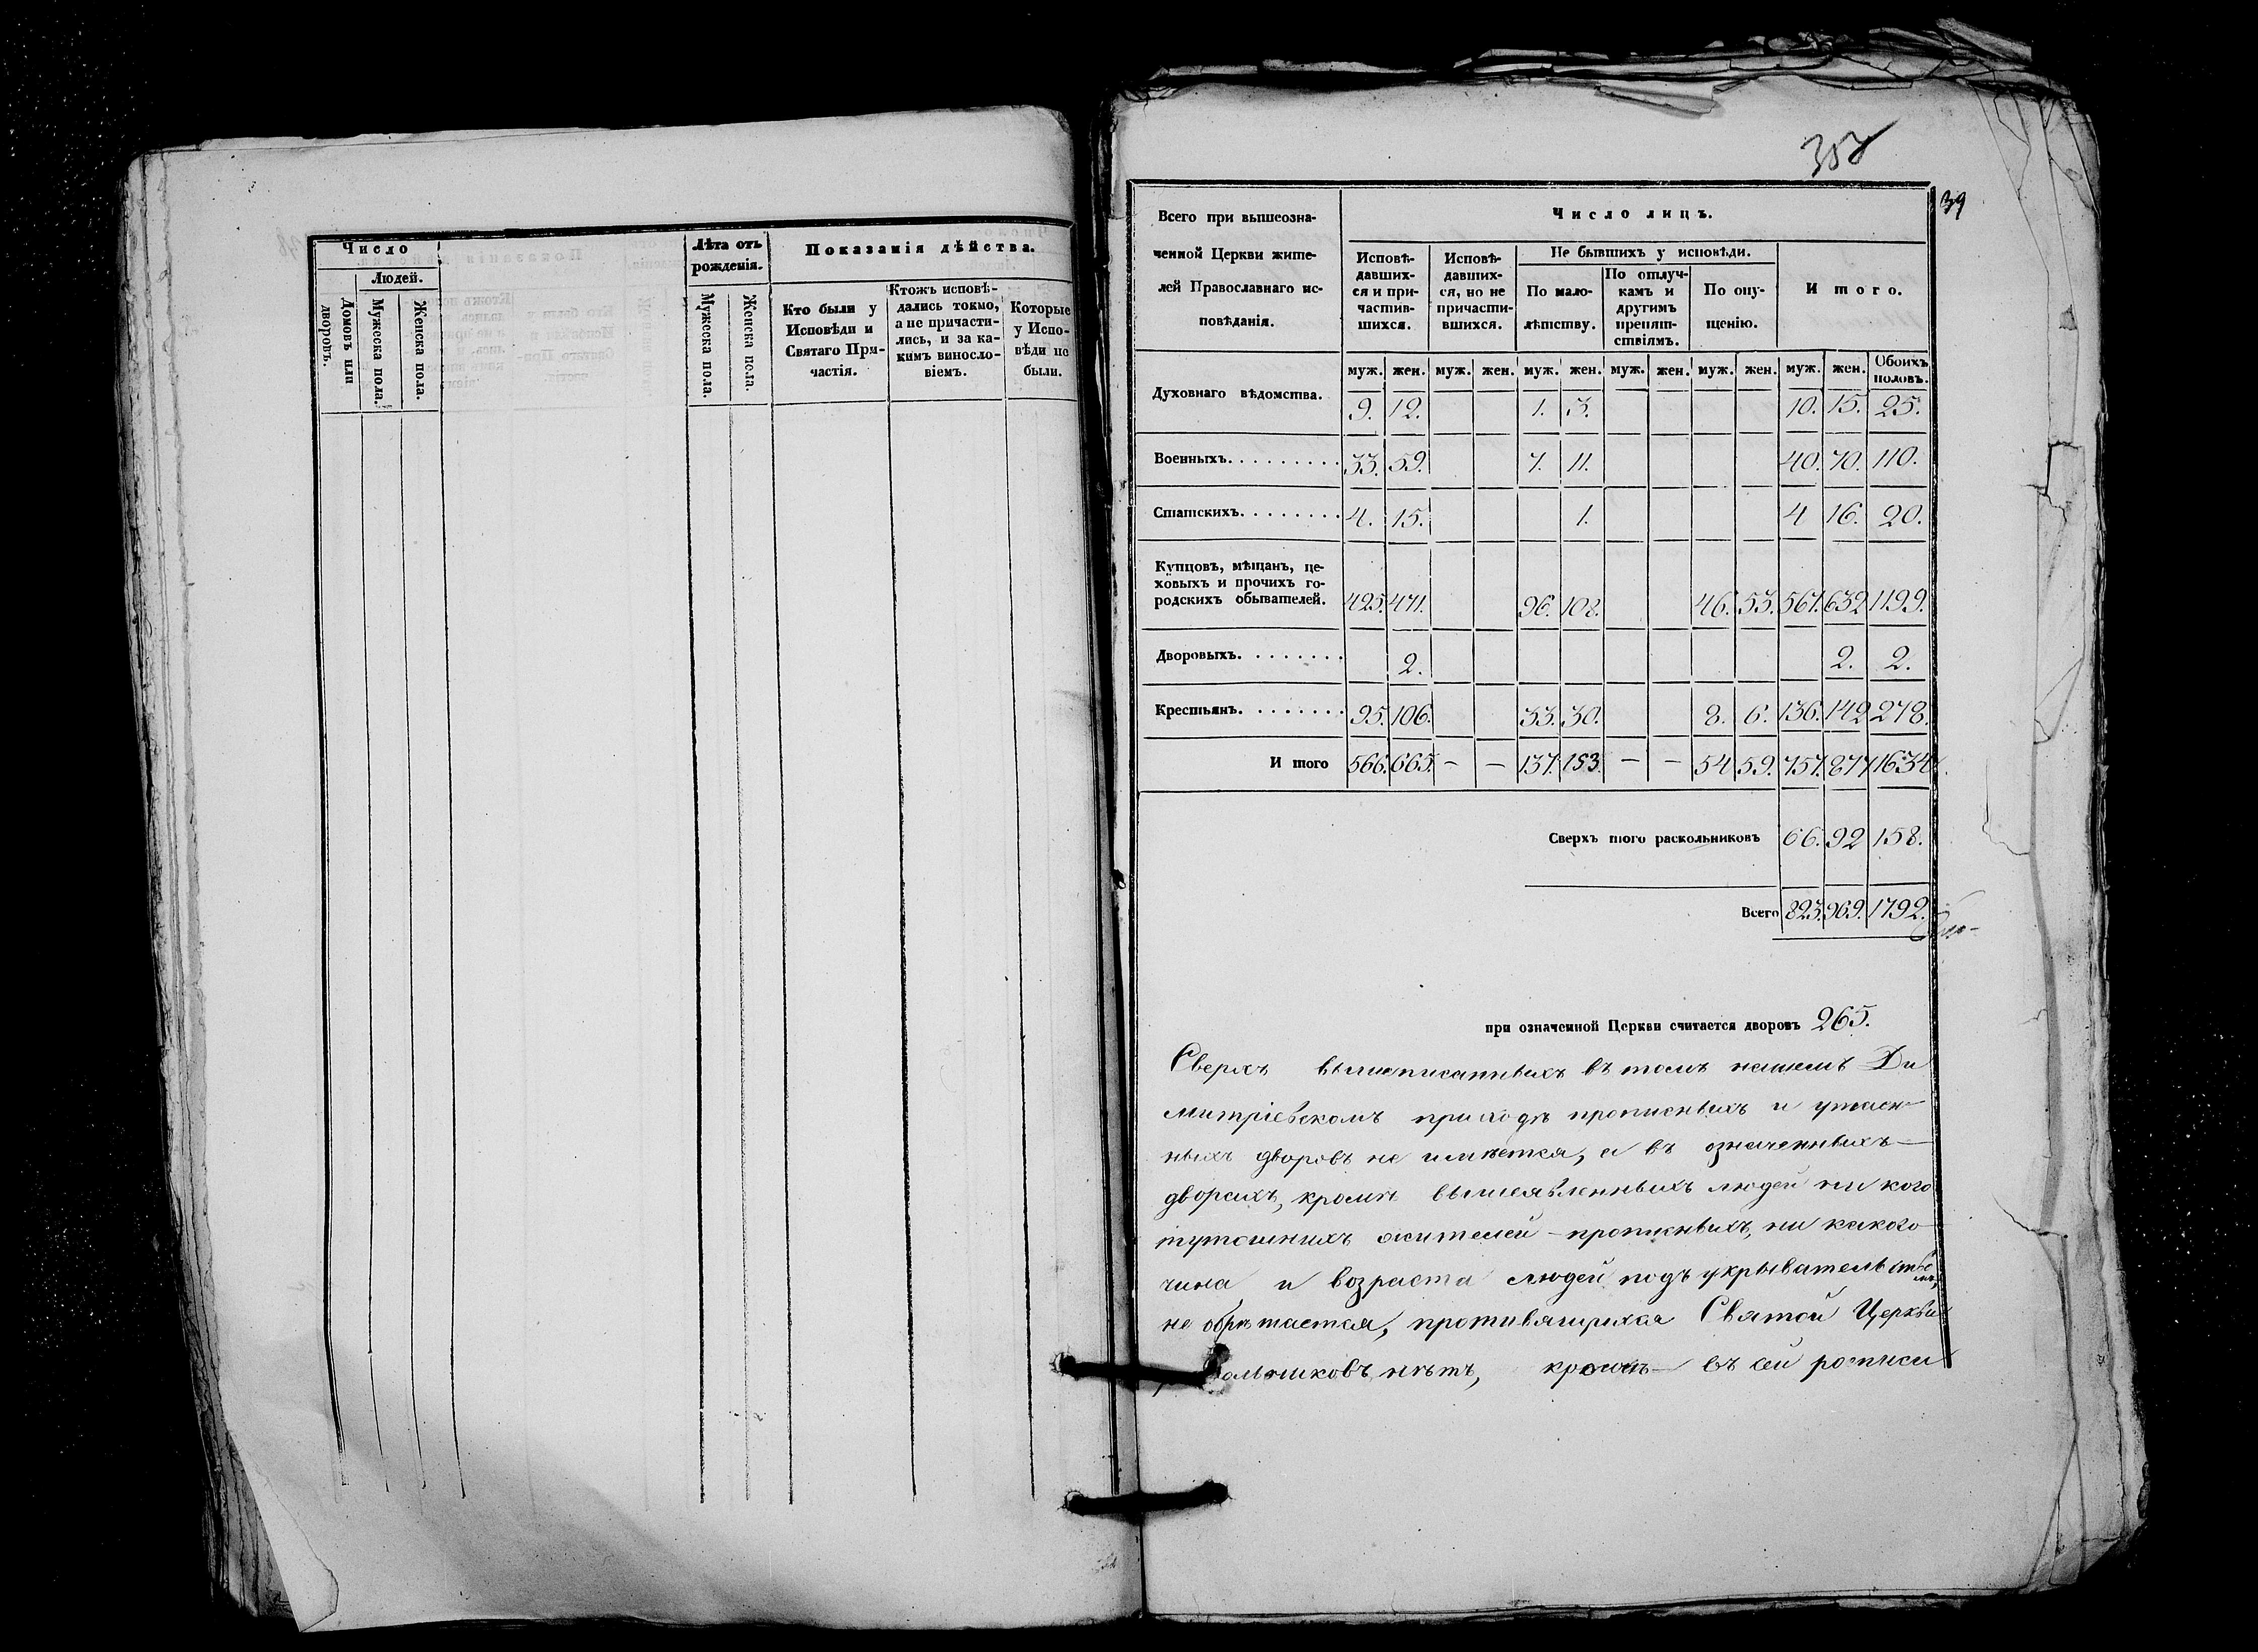 Число
Людей.
Домовъ или дворовъ.
Мужеска пола.
Женска пола.
Лѣта отъ
рожденія.
Мужеска пола.
Женска пола.
Показанія дѣйства.
Кто были у
Исповѣди и
Святаго При-
частія.
Ктожъ исповѣ-
дались токмо,
а не причасти-
лись, и за ка-
кимъ виносло-
віемъ.
Которые
у Испо-
вѣди не
были.
39
Всего при вышеозна-
ченной Церкви жите-
лей Православнаго ис-
повѣданія.
Число лицъ.
Исповѣ-
давших-
ся и при-
частив-
шихся.
Исповѣ-
давших-
ся, но не
причасти-
вшихся.
Не бывшихъ у исповѣди.
По мало-
лѣтству.
По отлуч-
камъ и
другимъ
препят-
ствіямъ.
По опу-
щенію.
И того.
муж. жен. муж. жен. муж. жен. муж. жен. муж. жен. муж. жен. Обоихъ половъ.
Духовнаго вѣдомства. 9. 12. 1. 3. 10. 15. 25.
Военныхъ. . . . . . . . . 33. 59. 7. 11. 40. 70. 110.
Статскихъ. . . . . . . . 4. 15. 1. 4 16. 20.
Купцовъ, мѣщанъ, це-
ховыхъ и прочихъ го-
родскихъ обывателей. 425. 471. 96. 108. 46. 53. 567. 632 1199.
Дворовыхъ. . . . . . . . 2. 2. 2.
Крестьянъ. . . . . . . . 95. 106. 33. 30. 8. 6. 136. 142 278.
И того 566. 665. - - 137. 153. - - 54 59. 757. 877 1634.
Сверхъ того раскольниковъ 66. 92 158.
Всего 823. 969. 1792.
при означенной Церкви считается дворовъ 265.
Сверхъ вышеписанныхъ въ томъ нашемъ Ди
митріевскомъ приходѣ прописныхъ и утаен-
ныхъ дворовъ не имѣется, а въ означенныхъ
дворахъ, кромѣ вышеявленныхъ людей ни кого
тутошнихъ жителей прописныхъ, ни какого
чина и возраста людей подъ укрывательствомъ
не обрѣтается, противящихся Святой Церкви
нѣтъ, кромѣ въ сей росписи